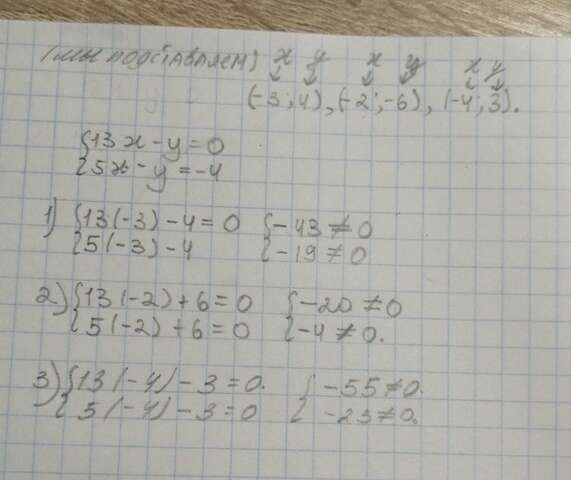 (мы подставляем) x y x y x y
(-3; 4), (-2; -6), (-4; 3).
{13x - y = 0
{5x - y = -4
1) {13(-3) - 4 = 0 {-43 ≠ 0
{5(-3) - 4 {-19 ≠ 0
2) {13(-2) + 6 = 0 {-20 ≠ 0
{5(-2) + 6 = 0 {-4 ≠ 0.
3) {13(-4) - 3 = 0. {-55 ≠ 0.
{5(-4) - 3 = 0 {-23 ≠ 0.